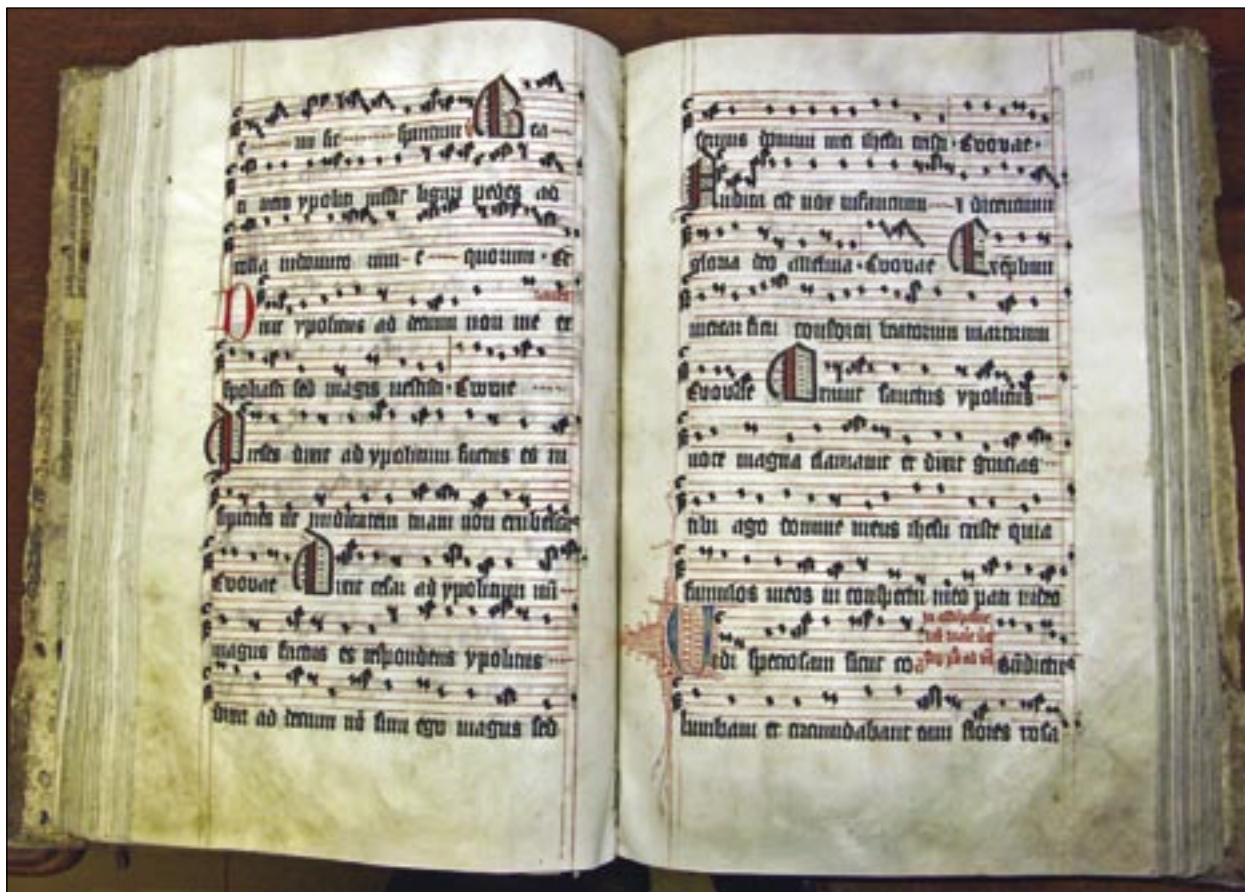 Bea
ti ypoliti ligari pedes ad
colla indomito rum e quorum . Et
Dixit ypolitus ad decium non me ex
spoliasti sed magis vestisti . Evovae
dixit ad ypolitum factus es in
sipiens ut nuditatem tuam non erubescis
Evovae Dixit cesar ad ypolitum
magus factus es respondens ypolitus
dixit ad decium nō sum ego magus sed
servus domini mei ihesu cristi . Evovae .
Audita est vox infantium dicentium
gloria deo alleluia . Evovae
fieri consortii beatorum martirum
Evovae sanctus ypolitus
voce magna clamavit et dixit gracias
tibi ago domine meus ihesu criste quia
famulos meos in conspectu meo pati video
Vidi speciosam sicut co
lumbam et circumdabant eam flores rosa